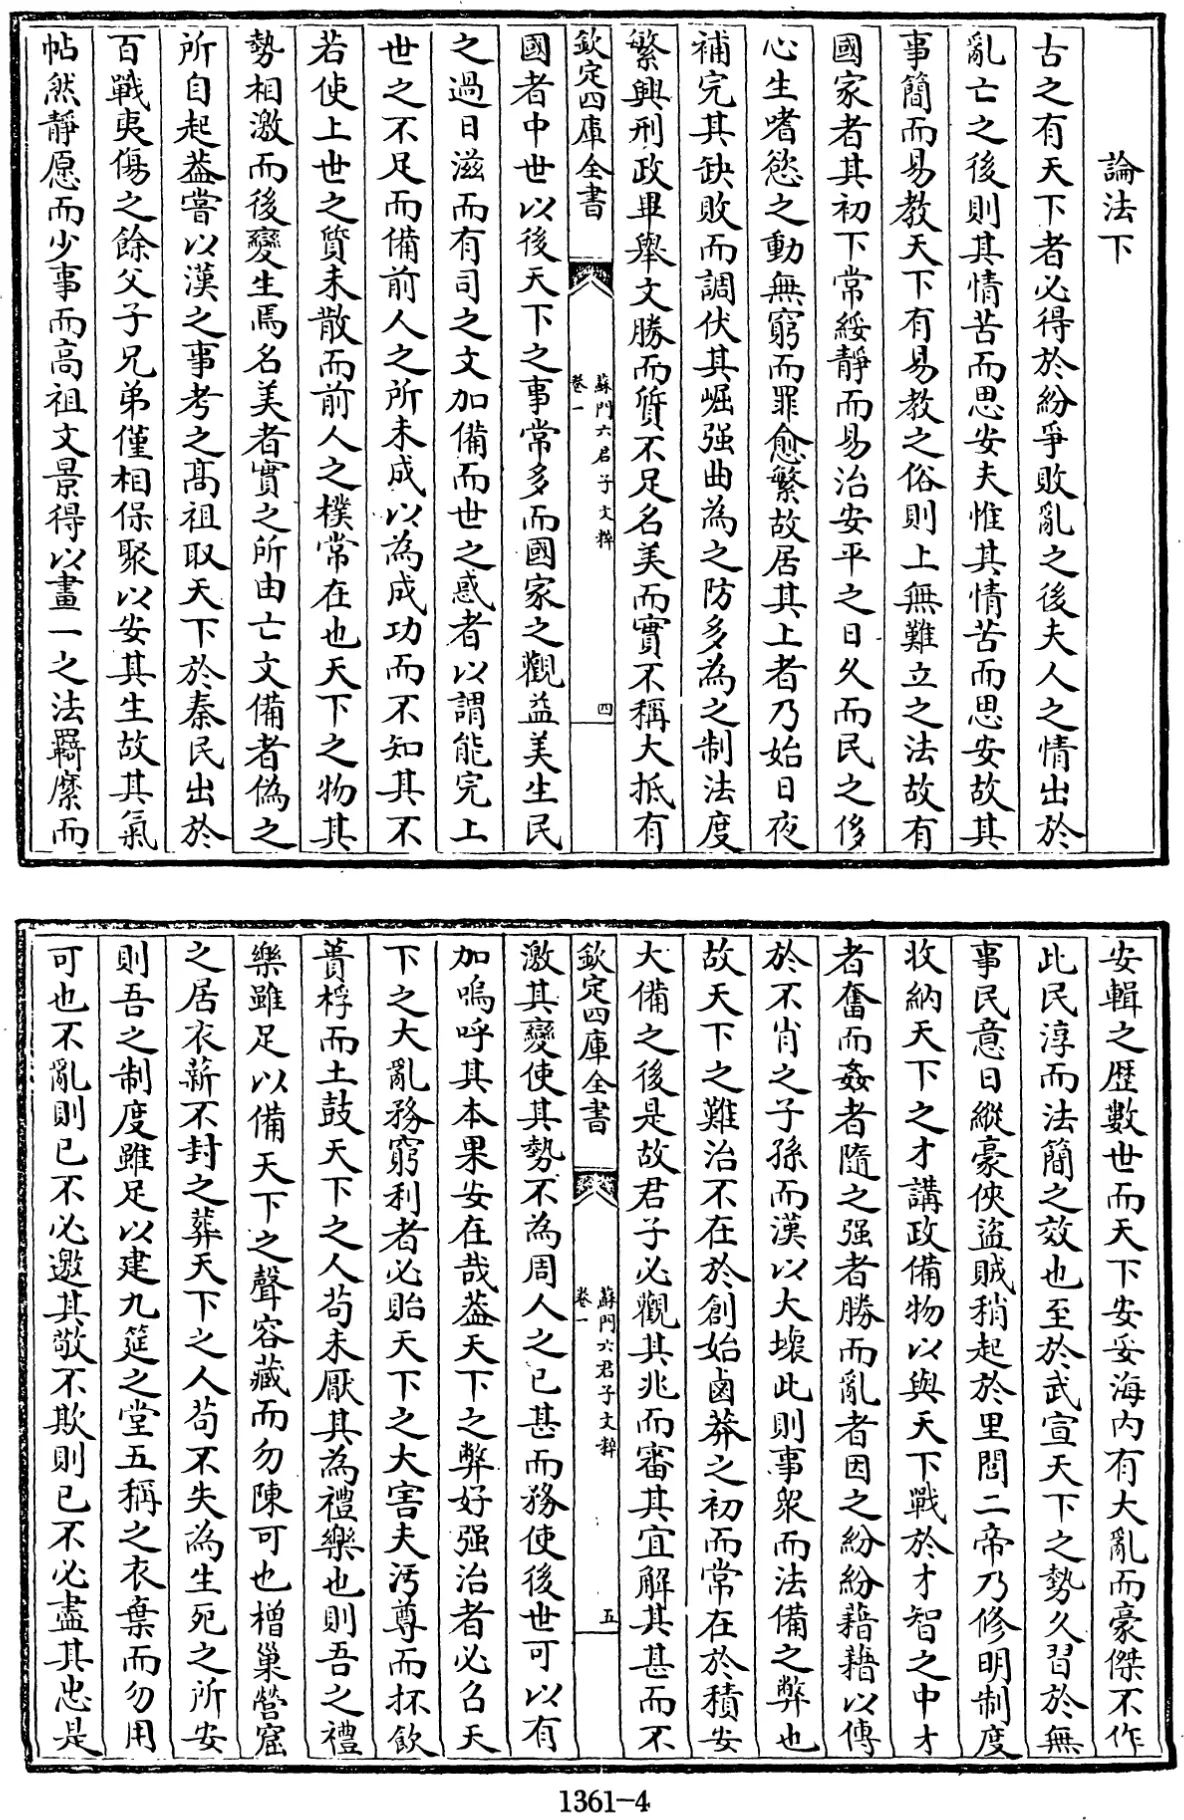 論法下
古之有天下者必得於紛爭敗亂之後夫人之情出於
亂亡之後則其情苦而思安夫惟其情苦而思安故其
事簡而易教天下有易教之俗則上無難立之法故有
國家者其初下常綏靜而易治安平之日久而民之侈
心生嗜慾之動無窮而罪愈繁故居其上者乃始日夜
補完其缺敗而調伏其崛强曲為之防多為之制法度
繁興刑政畢舉文勝而質不足名美而實不稱大抵有
欽定四庫全書
蘇門六君子文粹
卷一
四
國者中世以後天下之事常多而國家之觀益美生民
之過日滋而有司之文加備而世之惑者以謂能完上
世之不足而備前人之所未成以為成功而不知其不
若使上世之質未散而前人之樸常在也天下之物其
勢相激而後變生焉名美者實之所由亡文備者偽之
所自起葢嘗以漢之事考之髙祖取天下於秦民出於
百戰夷傷之餘父子兄弟僅相保聚以安其生故其氣
帖然靜愿而少事而高祖文景得以畫一之法羇縻而
安輯之歴數世而天下安妥海内有大亂而豪傑不作
此民淳而法簡之效也至於武宣天下之勢久習於無
事民意日縱豪俠盜賊稍起於里閭二帝乃修明制度
收納天下之才講政備物以與天下戰於才智之中才
者奮而姦者隨之强者勝而亂者因之紛紛藉藉以傳
於不肖之子孫而漢以大壞此則事衆而法備之弊也
故天下之難治不在於創始鹵莽之初而常在於積安
大備之後是故君子必觀其兆而審其宜解其甚而不
欽定四庫全書
蘇門六君子文粹
卷一
五
激其變使其勢不為周人之已甚而務使後世可以有
加嗚呼其本果安在哉葢天下之弊好强治者必召天
下之大亂務窮利者必貽天下之大害夫汚尊而抔飲
蕢桴而土鼓天下之人苟未厭其為禮樂也則吾之禮
樂雖足以備天下之聲容藏而勿陳可也橧巢營窟
之居衣薪不封之葬天下之人苟不失為生死之所安
則吾之制度雖足以建九筵之堂五稱之衣棄而勿用
可也不亂則已不必邀其敬不欺則已不必盡其忠是
1361-4